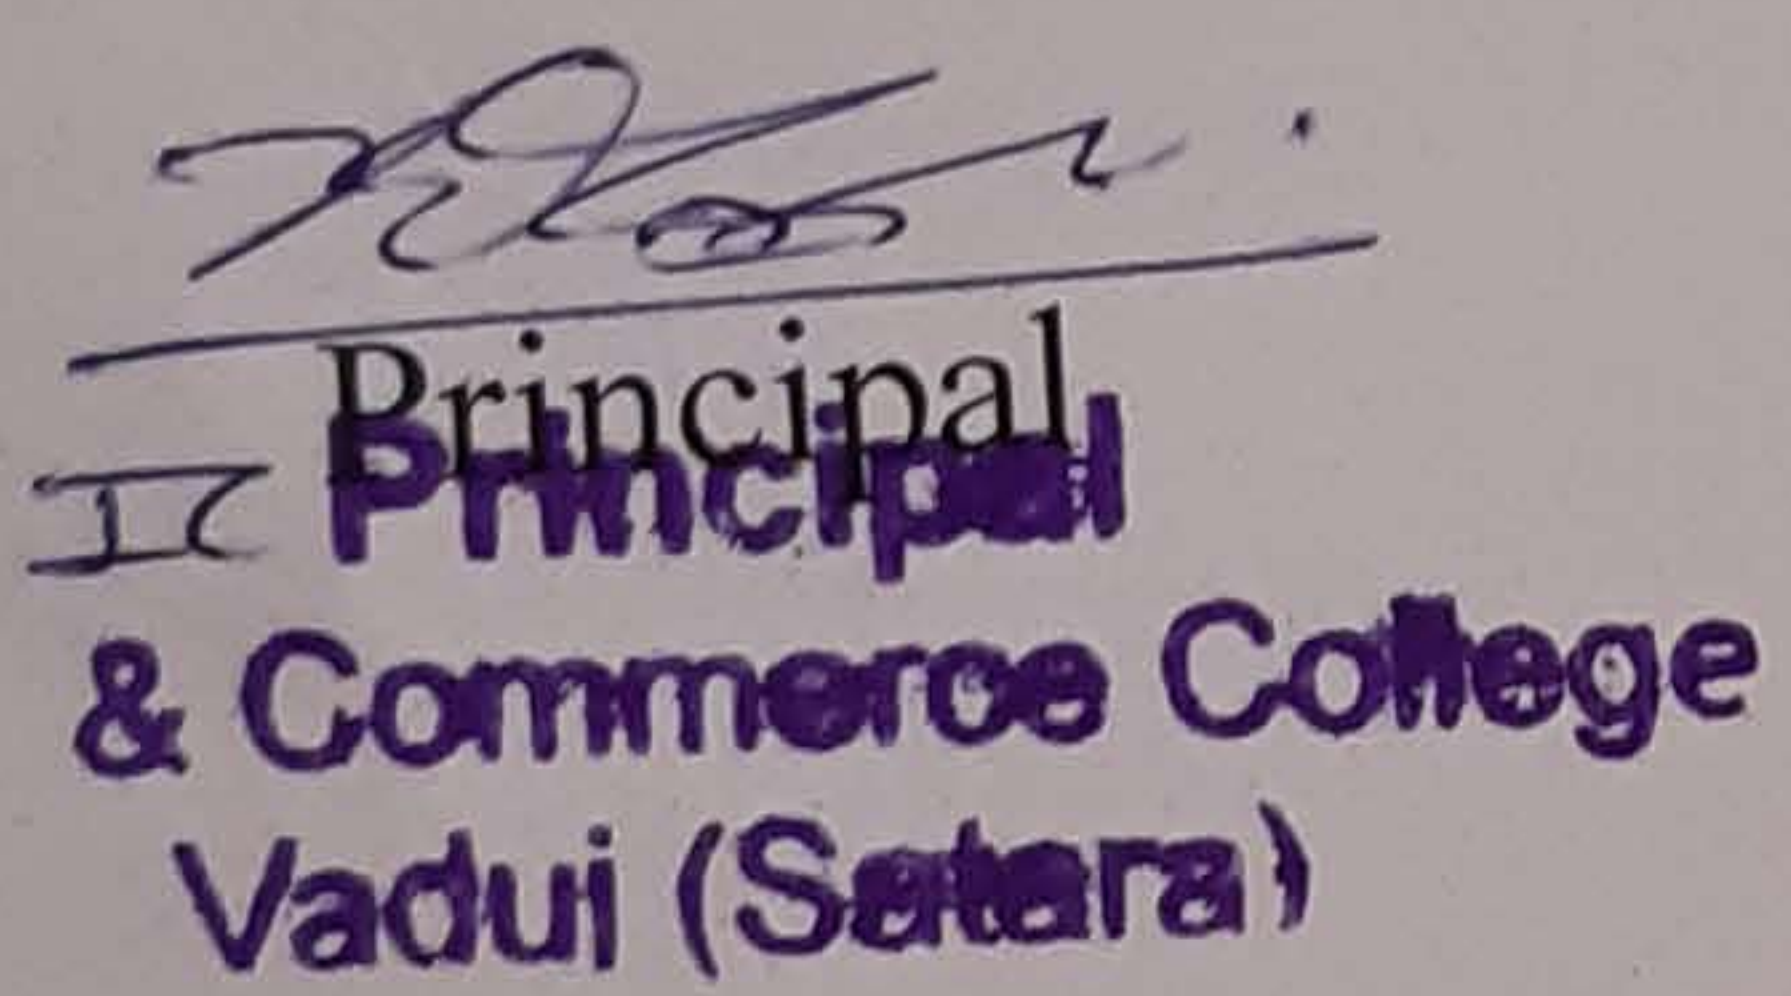 Principal
I/C Principal
& Commerce College
Vaduj (Satara)